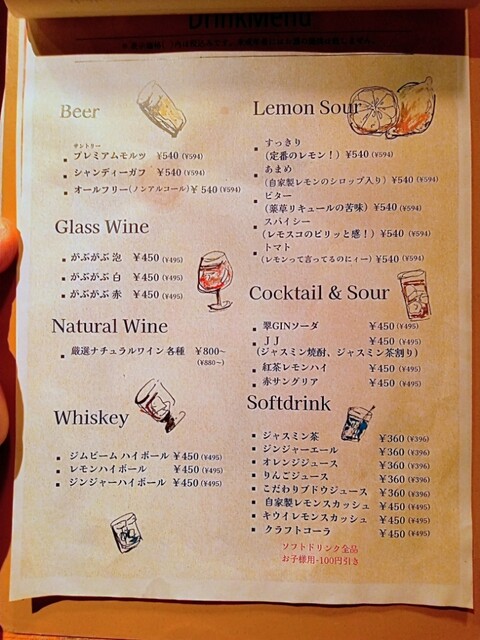 DrinkMenu
Beer
サントリー
プレミアムモルツ ¥540 (¥594)
シャンディーガフ ¥540 (¥594)
オールフリー(ノンアルコール) ¥540 (¥594)
Glass Wine
がぶがぶ 泡 ¥450 (¥495)
がぶがぶ 白 ¥450 (¥495)
がぶがぶ 赤 ¥450 (¥495)
Natural Wine
厳選ナチュラルワイン 各種 ¥800~
(¥880~)
Whiskey
ジムビーム ハイボール ¥450 (¥495)
レモンハイボール ¥450 (¥495)
ジンジャーハイボール ¥450 (¥495)
Lemon Sour
すっきり
(定番のレモン!) ¥540 (¥594)
あまめ
(自家製レモンのシロップ入り) ¥540 (¥594)
ビター
(薬草リキュールの苦味) ¥540 (¥594)
スパイシー
(レモスコのピリッと感!) ¥540 (¥594)
トマト
(レモンって言ってるのにィー) ¥540 (¥594)
Cocktail & Sour
翠GINソーダ ¥450 (¥495)
JJ ¥450 (¥495)
(ジャスミン焼酎、ジャスミン茶割り)
紅茶レモンハイ ¥450 (¥495)
赤サングリア ¥450 (¥495)
Softdrink
ジャスミン茶 ¥360 (¥396)
ジンジャーエール ¥360 (¥396)
オレンジジュース ¥360 (¥396)
りんごジュース ¥360 (¥396)
こだわりブドウジュース ¥360 (¥396)
自家製レモンスカッシュ ¥450 (¥495)
キウイレモンスカッシュ ¥450 (¥495)
クラフトコーラ ¥450 (¥495)
ソフトドリンク全品
お子様用-100円引き